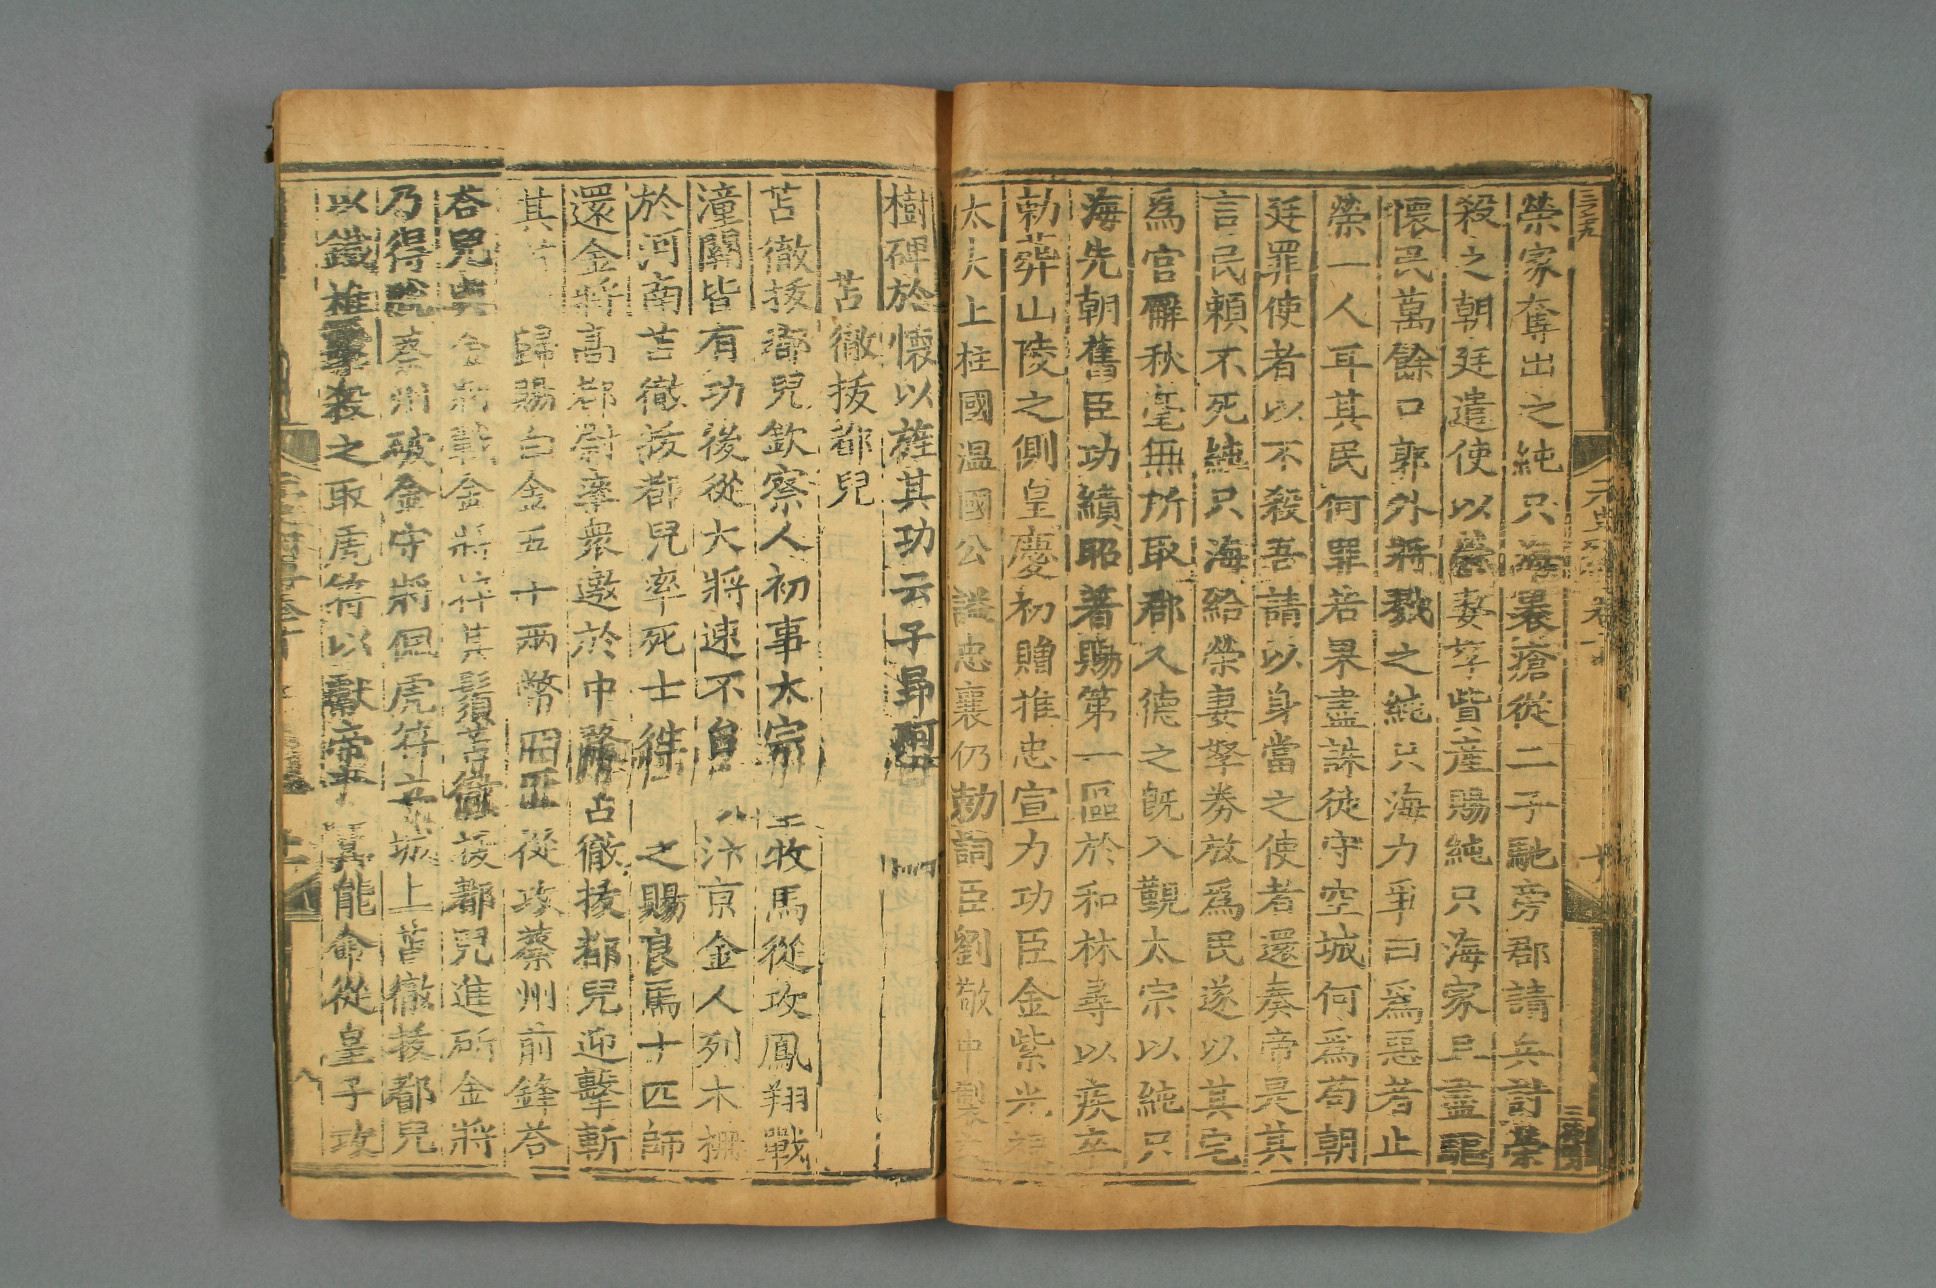 榮家奪出之純只海裹瘡從二子馳旁郡請兵討榮
殺之朝廷遣使以榮妻孥貲產賜純只海家且盡驅
懷民萬餘口郭外將戮之純只海力爭曰為惡者止
榮一人耳其民何罪若果盡誅徒守空城何為苟朝
廷罪使者以不殺吾請以身當之使者還奏帝是其
言民賴不死純只海給榮妻孥券放為民遂以其宅
為官廨秋毫無所取郡人德之既入覲太宗以純只
海先朝舊臣功績昭著賜第一區於和林尋以疾卒
勅葬山陵之側皇慶初贈推忠宣力功臣金紫光祿
太夫上柱國溫國公謚忠襄仍勅詞臣劉敏中製文
樹碑於懷以旌其功云子昂阿
苫徹拔都兒
苫徹拔都兒欽察人初事太宗 牧馬從攻鳳翔戰
潼關皆有功後從大將速不台 汴京金人列木柵
於河南苫徹拔都兒率死士往 之賜良馬十匹師
還金將高都尉率衆邀於中路苫徹拔都兒迎擊斬
其 歸賜白金五十兩幣四匹從攻蔡州前鋒荅
荅兒與金將戰金將捽其鬚苫徹拔都兒進斫金將
乃得脫蔡州破金守將佩虎符立城上苫徹拔都兒
以鐵椎擊殺之取虎符以獻帝 其能命從皇子攻